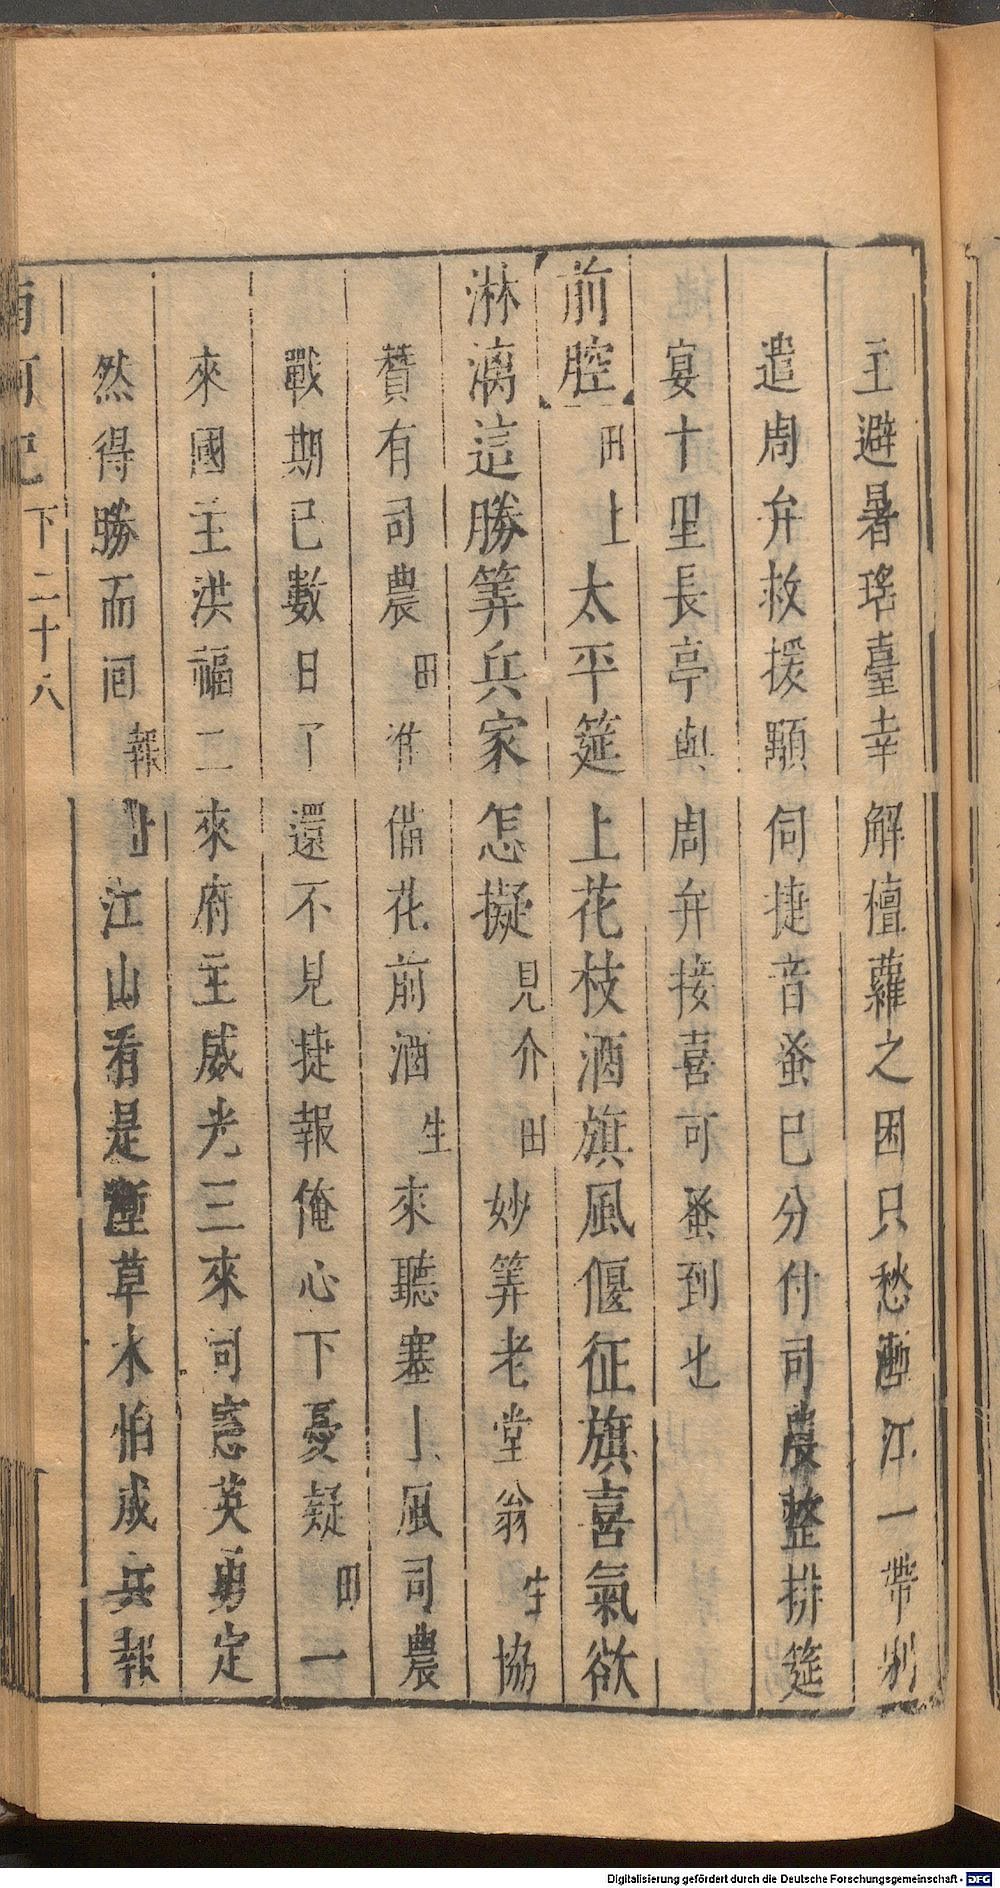 主避暑瑤臺幸解檀蘿之困只愁壍江一帶別
遣周弁救援顒伺捷音蚤已分付司農整排筵
宴十里長亭與周弁接喜可蚤到也
前腔 田上 太平筵上花枝酒旗風偃征旗喜氣欲
淋漓這勝筭兵家怎擬 見介 田 妙筭老堂翁 生 協
贊有司農 田 准備花前酒 生 來聽塞上風司農
戰期已數日了還不見捷報俺心下憂疑 田 一
來國主洪福二來府主威光三來司憲英勇定
然得勝而回 報 上 江山看是壍草木怕成兵報
南柯記 下 二十八
Digitalisierung gefördert durch die Deutsche Forschungsgemeinschaft - DFG